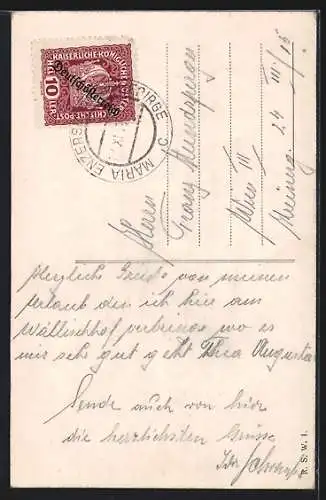 KAISERLICHE KÖNIGLICHE
Deutschösterreich
10
MARIA ENZERS GEBIRGE C
Herrn
Franz
Wien III
24 III
Herzliche Grüße von meinem
Urlaub den ich hier am
Wällischhof verbringe wo es
mir sehr gut geht Thea Augusta
Sende auch von hier
die herzlichsten Grüsse
Ida
K. S. W. I.